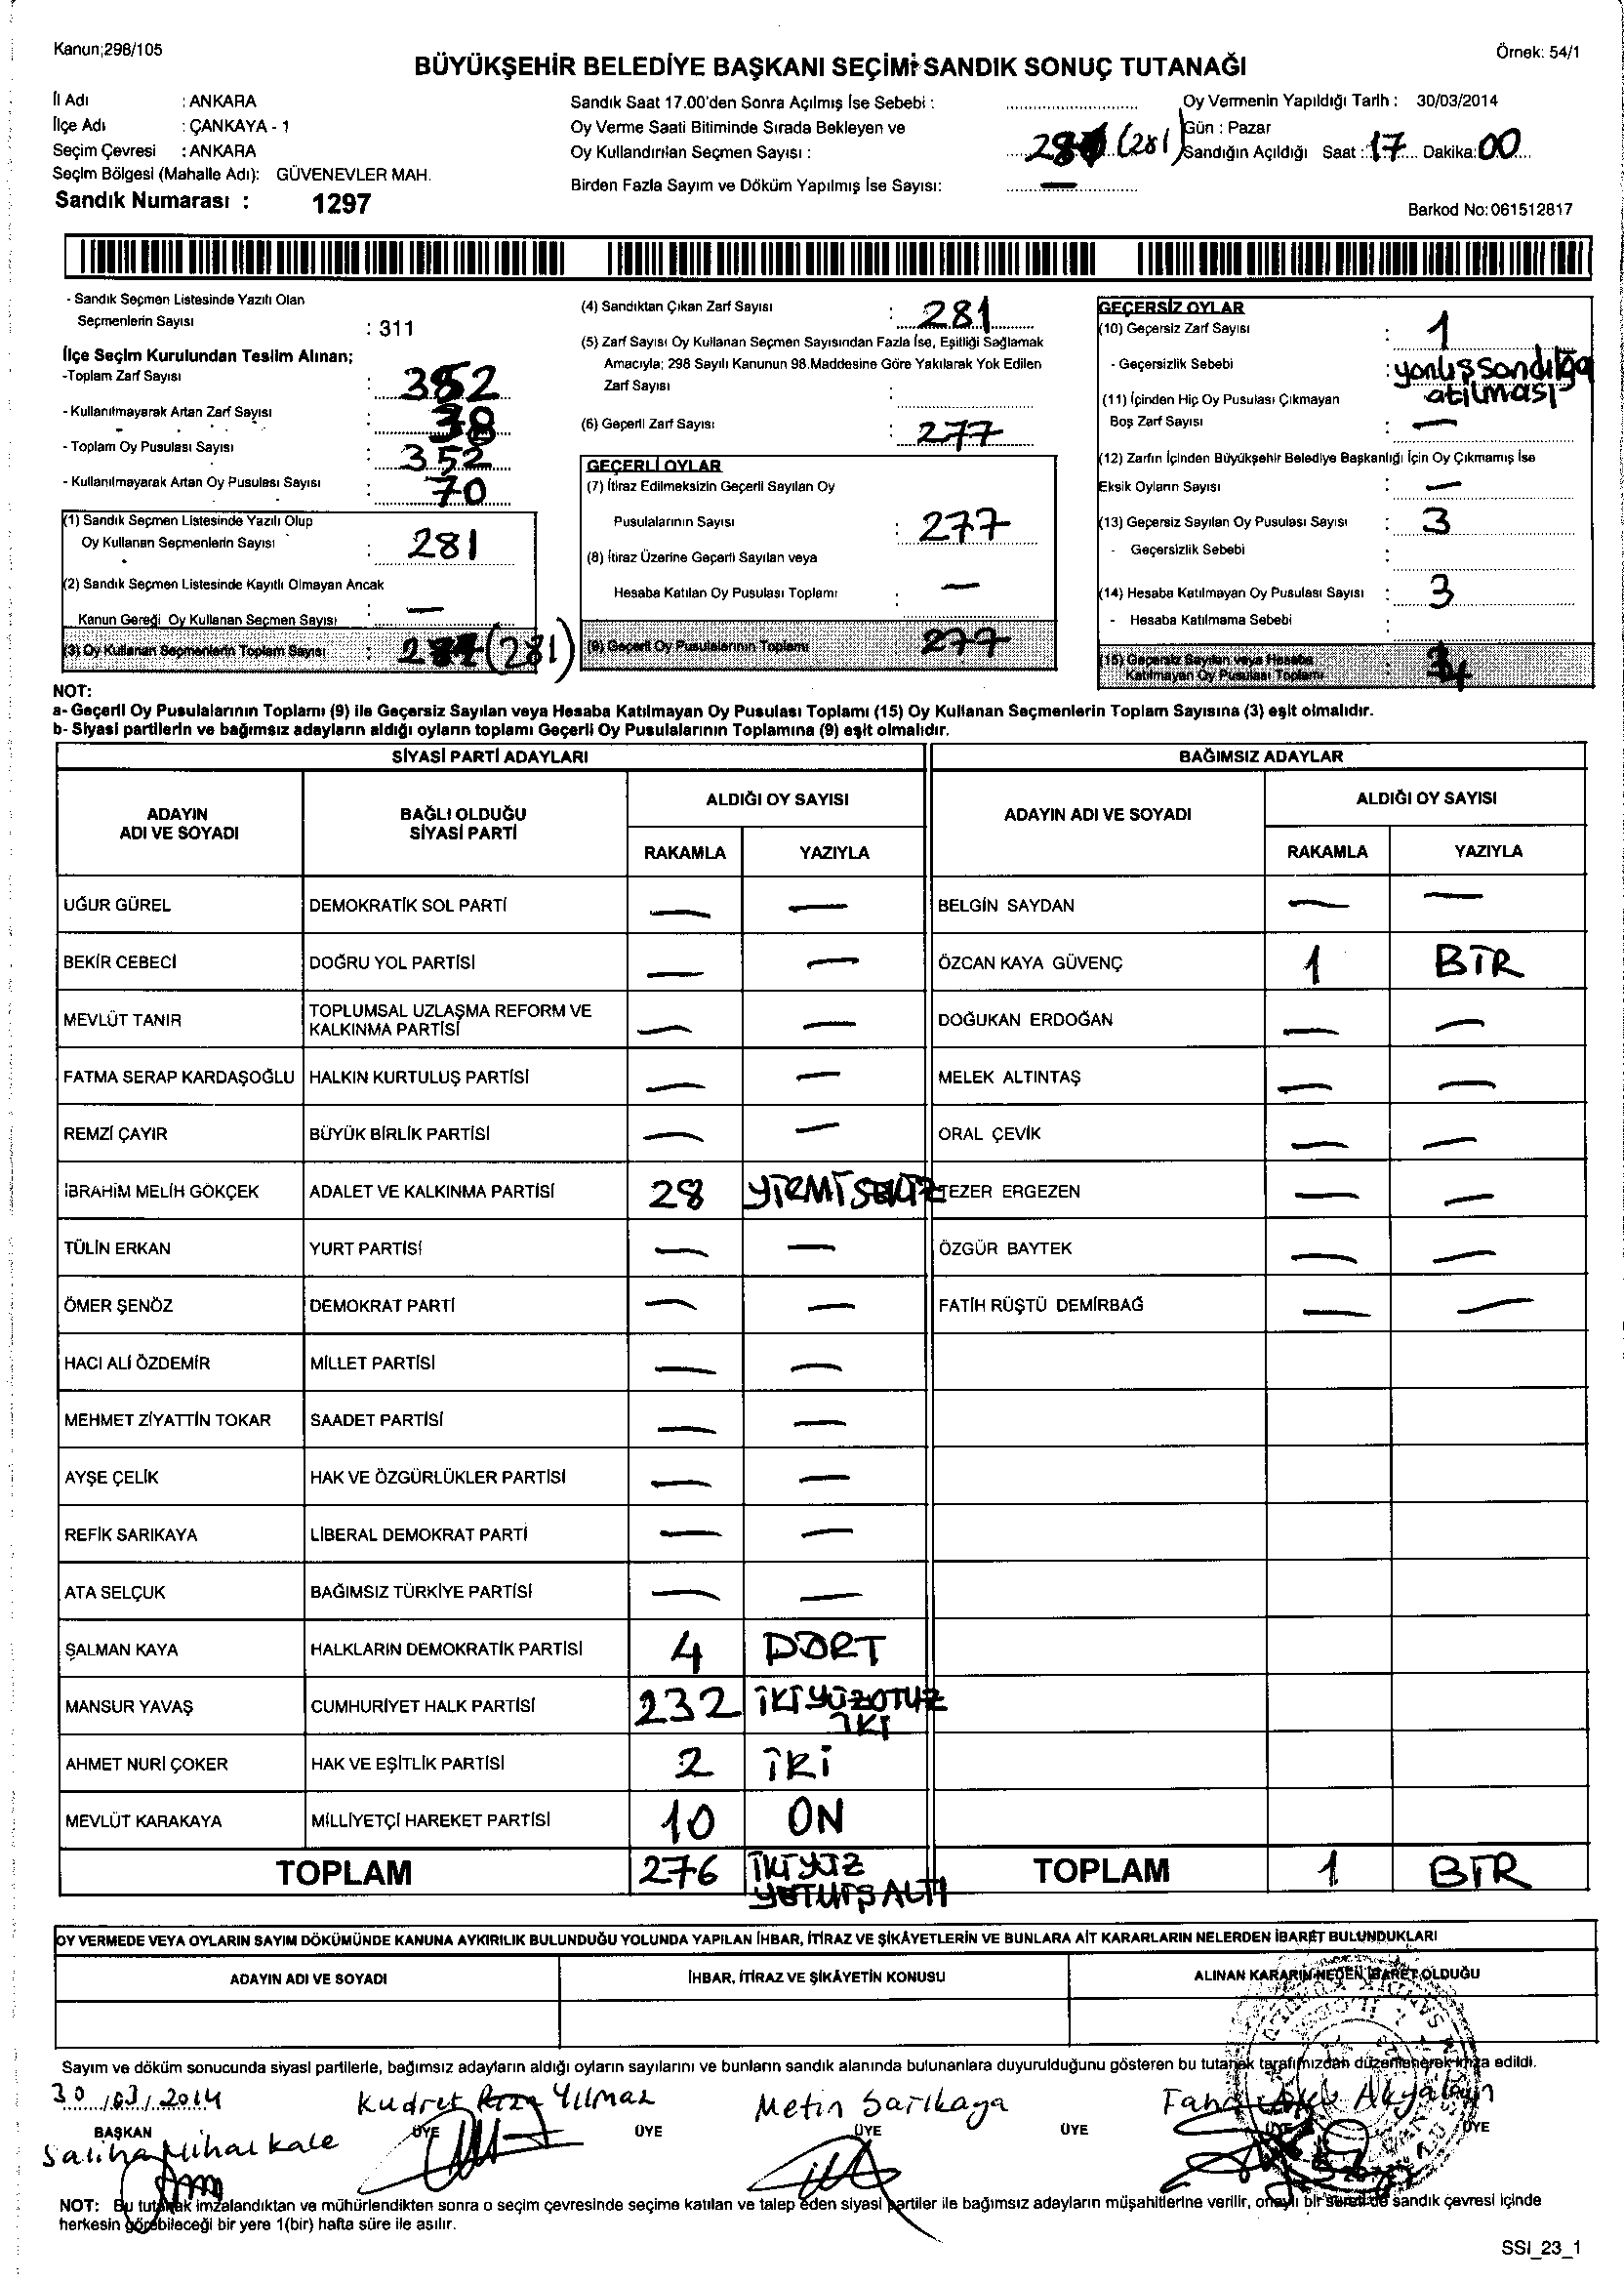 Kanun;298/105
Örnek: 54/1
BÜYÜKŞEHİR BELEDİYE BAŞKANI SEÇİMİ SANDIK SONUÇ TUTANAĞI
İl Adı : ANKARA
İlçe Adı : ÇANKAYA - 1
Seçim Çevresi : ANKARA
Seçim Bölgesi (Mahalle Adı): GÜVENEVLER MAH.
Sandık Numarası : 1297
Sandık Saat 17.00'den Sonra Açılmış İse Sebebi :
Oy Verme Saati Bitiminde Sırada Bekleyen ve
Oy Kullandırılan Seçmen Sayısı : (281)
Birden Fazla Sayım ve Döküm Yapılmış İse Sayısı: —
Oy Vermenin Yapıldığı Tarih : 30/03/2014
Gün : Pazar
Sandığın Açıldığı Saat : 17 Dakika: 00
Barkod No: 061512817
- Sandık Seçmen Listesinde Yazılı Olan
Seçmenlerin Sayısı : 311
İlçe Seçim Kurulundan Teslim Alınan;
-Toplam Zarf Sayısı : 352
- Kullanılmayarak Artan Zarf Sayısı :
- Toplam Oy Pusulası Sayısı : 352
- Kullanılmayarak Artan Oy Pusulası Sayısı : 70
(1) Sandık Seçmen Listesinde Yazılı Olup
Oy Kullanan Seçmenlerin Sayısı : 281
(2) Sandık Seçmen Listesinde Kayıtlı Olmayan Ancak
Kanun Gereği Oy Kullanan Seçmen Sayısı : —
(3) Oy Kullanan Seçmenlerin Toplam Sayısı : (281)
(4) Sandıktan Çıkan Zarf Sayısı : 281
(5) Zarf Sayısı Oy Kullanan Seçmen Sayısından Fazla İse, Eşitliği Sağlamak
Amacıyla; 298 Sayılı Kanunun 98.Maddesine Göre Yakılarak Yok Edilen
Zarf Sayısı :
(6) Geçerli Zarf Sayısı : 277
GEÇERLİ OYLAR
(7) İtiraz Edilmeksizin Geçerli Sayılan Oy
Pusulalarının Sayısı : 277
(8) İtiraz Üzerine Geçerli Sayılan veya
Hesaba Katılan Oy Pusulası Toplamı : —
(9) Geçerli Oy Pusulalarının Toplamı 277
GEÇERSİZ OYLAR
(10) Geçersiz Zarf Sayısı : 1
- Geçersizlik Sebebi : yanlış sandığa
atılması
(11) İçinden Hiç Oy Pusulası Çıkmayan
Boş Zarf Sayısı : —
(12) Zarfın İçinden Büyükşehir Belediye Başkanlığı İçin Oy Çıkmamış İse
Eksik Oyların Sayısı : —
(13) Geçersiz Sayılan Oy Pusulası Sayısı : 3
- Geçersizlik Sebebi :
(14) Hesaba Katılmayan Oy Pusulası Sayısı : 3
- Hesaba Katılmama Sebebi :
(15) Geçersiz Sayılan veya Hesaba
Katılmayan Oy Pusulası Toplamı :
NOT:
a- Geçerli Oy Pusulalarının Toplamı (9) ile Geçersiz Sayılan veya Hesaba Katılmayan Oy Pusulası Toplamı (15) Oy Kullanan Seçmenlerin Toplam Sayısına (3) eşit olmalıdır.
b- Siyasi partilerin ve bağımsız adayların aldığı oyların toplamı Geçerli Oy Pusulalarının Toplamına (9) eşit olmalıdır.
SİYASİ PARTİ ADAYLARI
BAĞIMSIZ ADAYLAR
ADAYIN
ADI VE SOYADI
BAĞLI OLDUĞU
SİYASİ PARTİ
ALDIĞI OY SAYISI
RAKAMLA YAZIYLA
ADAYIN ADI VE SOYADI
ALDIĞI OY SAYISI
RAKAMLA YAZIYLA
UĞUR GÜREL DEMOKRATİK SOL PARTİ — — BELGİN SAYDAN — —
BEKİR CEBECİ DOĞRU YOL PARTİSİ — — ÖZCAN KAYA GÜVENÇ 1 BİR
MEVLÜT TANIR TOPLUMSAL UZLAŞMA REFORM VE
KALKINMA PARTİSİ — — DOĞUKAN ERDOĞAN — —
FATMA SERAP KARDAŞOĞLU HALKIN KURTULUŞ PARTİSİ — — MELEK ALTINTAŞ — —
REMZİ ÇAYIR BÜYÜK BİRLİK PARTİSİ — — ORAL ÇEVİK — —
İBRAHİM MELİH GÖKÇEK ADALET VE KALKINMA PARTİSİ 28 YİRMİ SEKİZ TEZER ERGEZEN — —
TÜLİN ERKAN YURT PARTİSİ — — ÖZGÜR BAYTEK — —
ÖMER ŞENÖZ DEMOKRAT PARTİ — — FATİH RÜŞTÜ DEMİRBAĞ — —
HACI ALİ ÖZDEMİR MİLLET PARTİSİ — —
MEHMET ZİYATTİN TOKAR SAADET PARTİSİ — —
AYŞE ÇELİK HAK VE ÖZGÜRLÜKLER PARTİSİ — —
REFİK SARIKAYA LİBERAL DEMOKRAT PARTİ — —
ATA SELÇUK BAĞIMSIZ TÜRKİYE PARTİSİ — —
ŞALMAN KAYA HALKLARIN DEMOKRATİK PARTİSİ 4 DÖRT
MANSUR YAVAŞ CUMHURİYET HALK PARTİSİ 232 İKİ YÜZ OTUZ
İKİ
AHMET NURİ ÇOKER HAK VE EŞİTLİK PARTİSİ 2 İKİ
MEVLÜT KARAKAYA MİLLİYETÇİ HAREKET PARTİSİ 10 ON
TOPLAM 276 İKİ YÜZ
YETMİŞ ALTI
TOPLAM 1 BİR
OY VERMEDE VEYA OYLARIN SAYIM DÖKÜMÜNDE KANUNA AYKIRILIK BULUNDUĞU YOLUNDA YAPILAN İHBAR, İTİRAZ VE ŞİKÂYETLERİN VE BUNLARA AİT KARARLARIN NELERDEN İBARET BULUNDUKLARI
ADAYIN ADI VE SOYADI İHBAR, İTİRAZ VE ŞİKÂYETİN KONUSU ALINAN KARARIN NEDEN İBARET OLDUĞU
Sayım ve döküm sonucunda siyasi partilerle, bağımsız adayların aldığı oyların sayılarını ve bunların sandık alanında bulunanlara duyurulduğunu gösteren bu tutanak tarafımızdan düzenlenerek imza edildi.
30 / 03 / 2014 Kudret Rıza Yılmaz Metin Sarıkaya
BAŞKAN ÜYE ÜYE ÜYE ÜYE ÜYE ÜYE
Saliha Nihal Kale
NOT: Bu tutanak imzalandıktan ve mühürlendikten sonra o seçim çevresinde seçime katılan ve talep eden siyasi partiler ile bağımsız adayların müşahitlerine verilir, onaylı bir sureti de sandık çevresi içinde
herkesin görebileceği bir yere 1(bir) hafta süre ile asılır.
SSI_23_1